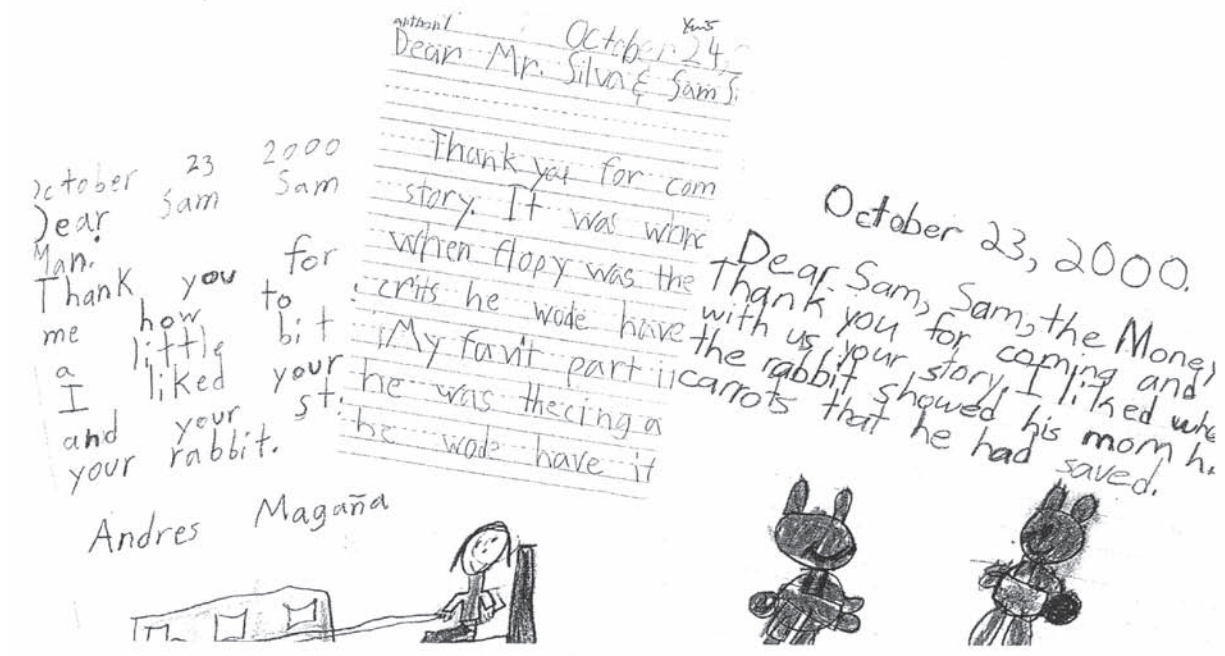 October 23 2000
Dear Sam Sam
Man.
Thank you for
me how to
a little bit
I liked your
and your st.
your rabbit.
Andres Magaña
anthony
October 24,
Dear Mr. Silva & Sam S.
Thank you for com
story. It was
when flopy was the
crits he wode have
My favit part i
he was thecing a
he wode have it
October 23, 2000.
Dear Sam, Sam, the Money
Thank you for coming and
with us your story. I liked whe
the rabbit showed his mom h
carrots that he had saved.